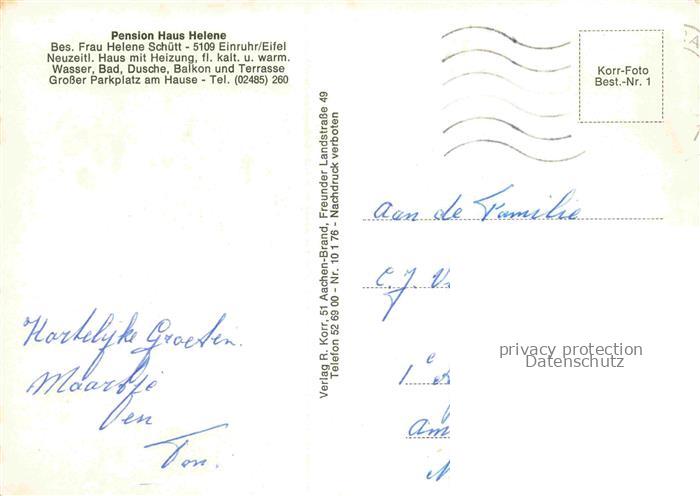 Pension Haus Helene
Bes. Frau Helene Schütt - 5109 Einruhr/Eifel
Neuzeitl. Haus mit Heizung, fl. kalt. u. warm.
Wasser, Bad, Dusche, Balkon und Terrasse
Großer Parkplatz am Hause - Tel. (02485) 260
Hartelijke Groeten.
Maartje
en
Ton.
Verlag R. Korr, 51 Aachen-Brand, Freunder Landstraße 49
Telefon 52 69 00 - Nr. 10 1 76 - Nachdruck verboten
Korr-Foto
Best.-Nr. 1
Aan de Familie
C.J. V
1e
Am
privacy protection
Datenschutz